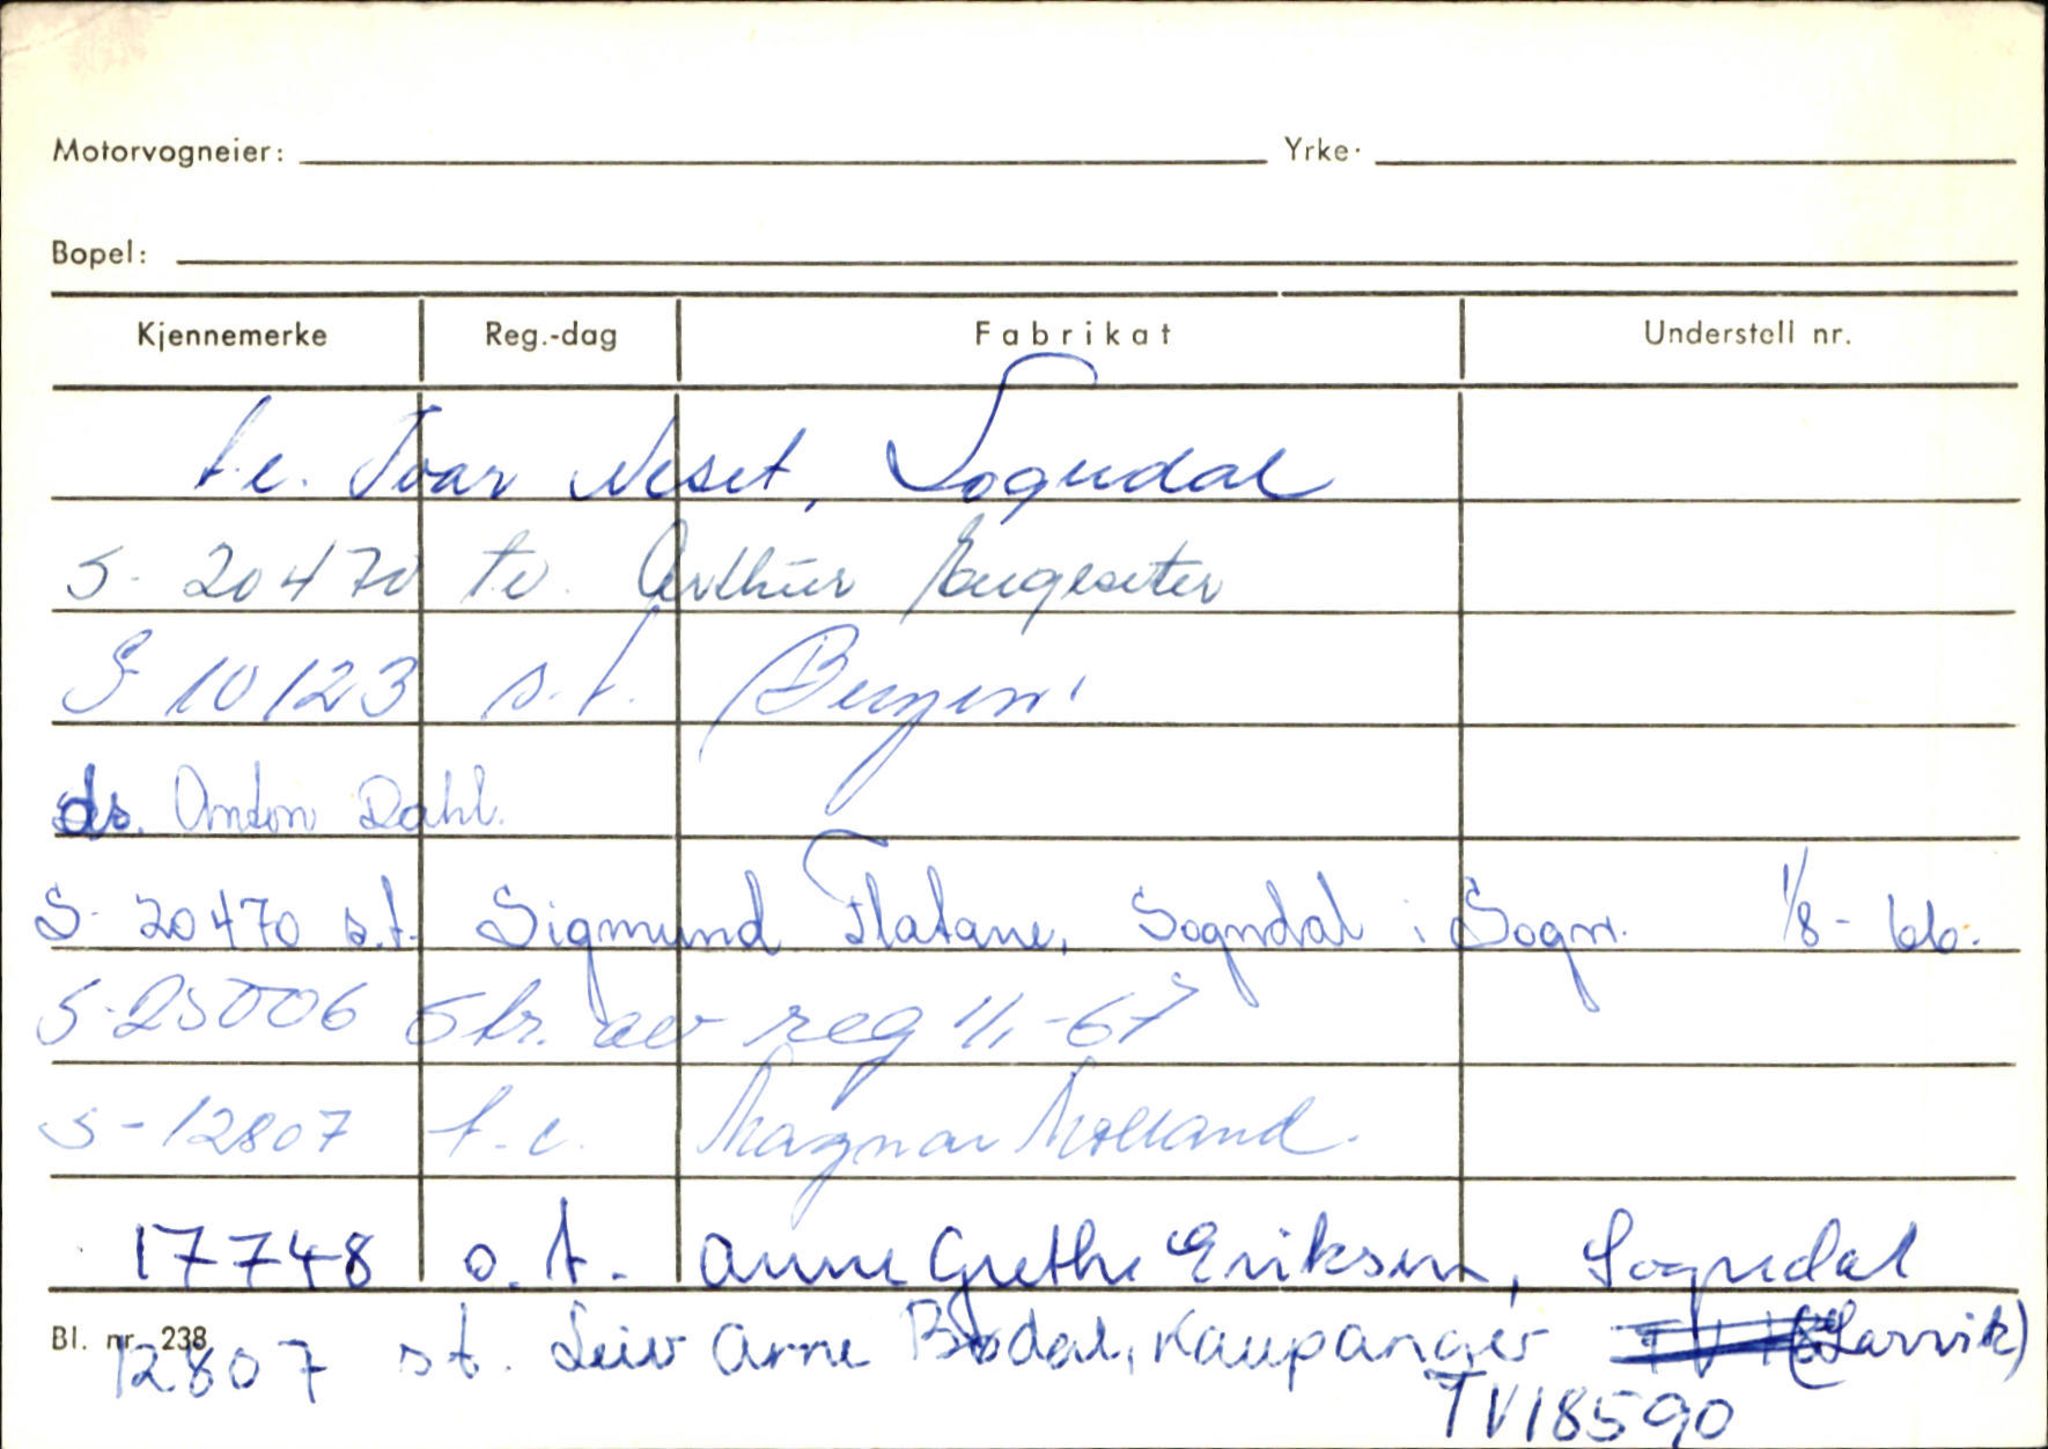 Motorvogneier: Yrke·
Bopel:
Kjennemerke Reg.-dag Fabrikat Understell nr.
t.e. Ivar Neset, Sogndal
S- 20470 to. Arthur
S 10123 s.t. Bergen
ds. Anton Dahl.
S- 20470 s.t. Sigmund Flatane, Sogndal i Sogn. 1/8- 66.
S-25006 Str. av reg 1/1-67
S-12807 t.e. Magnar Molland.
17748 o.t. Anne Grethe Eriksen, Sogndal
Bl. nr. 238
12807 st. Leiv Arne Bodal, Kaupanger (Larvik)
TV18590